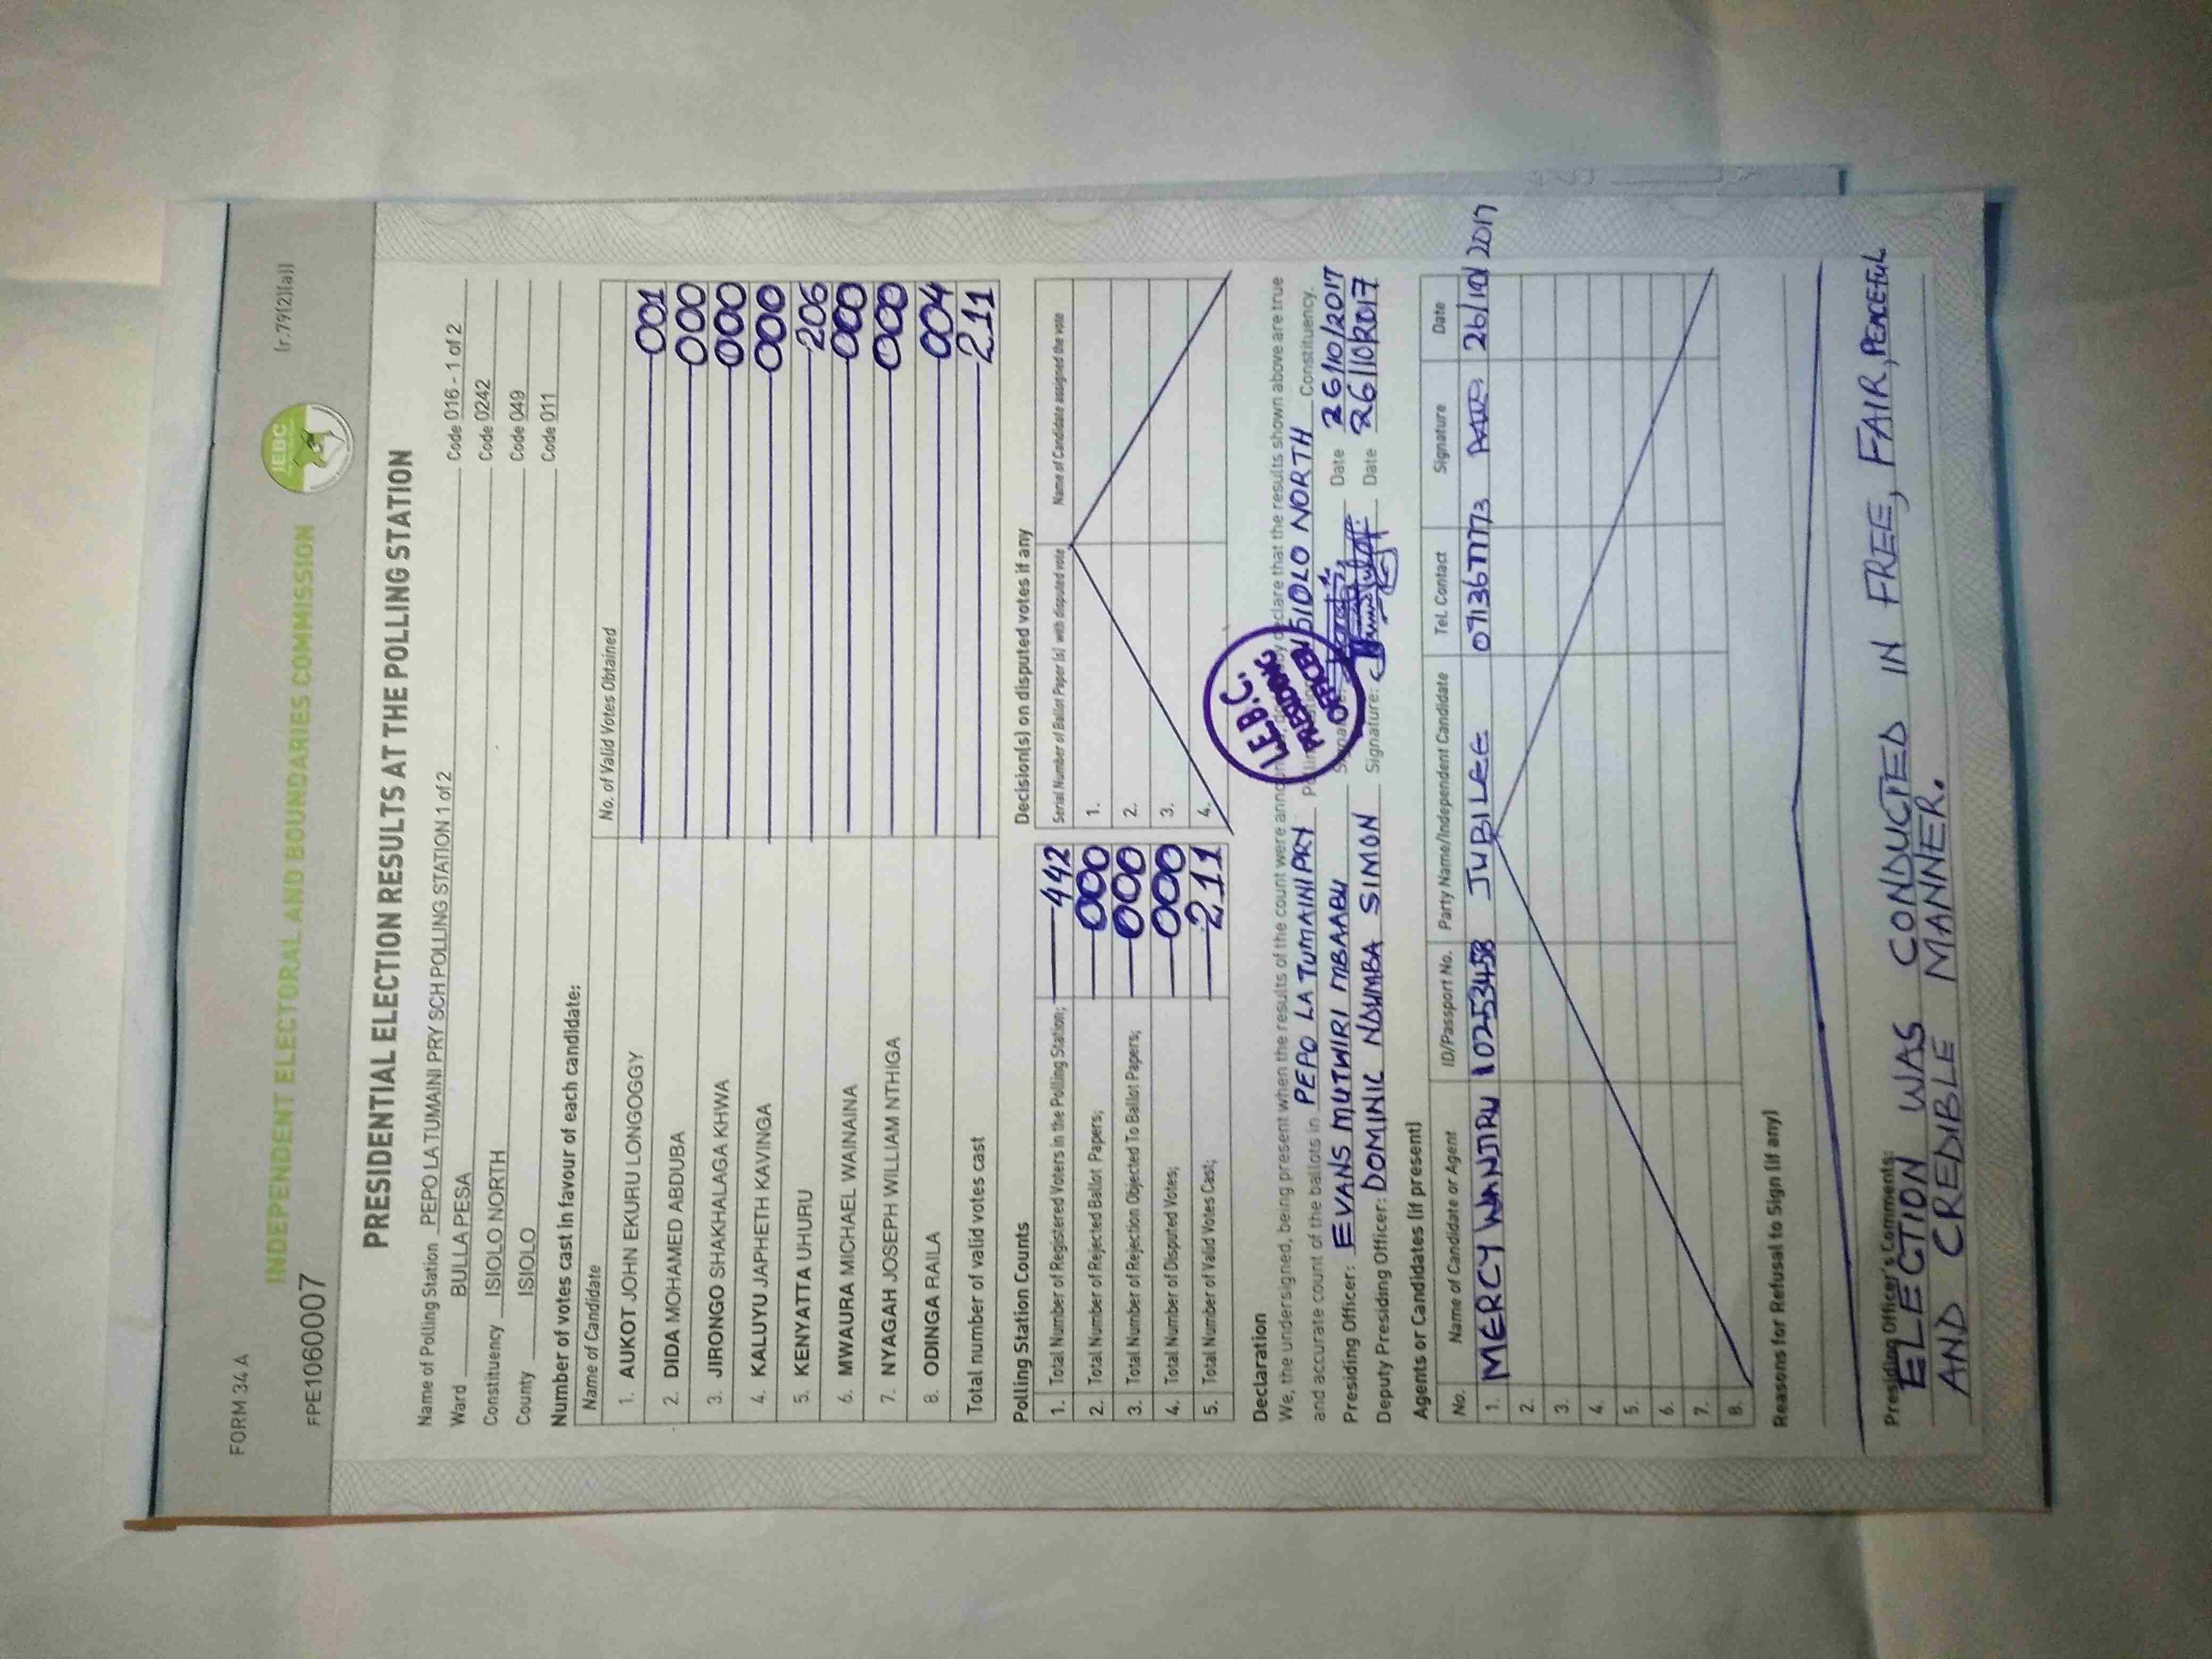 FORM 34 A
(r.79(2)(a))
INDEPENDENT ELECTORAL AND BOUNDARIES COMMISSION
IEBC
FPE1060007
PRESIDENTIAL ELECTION RESULTS AT THE POLLING STATION
Name of Polling Station PEPO LA TUMAINI PRY SCH POLLING STATION 1 of 2 Code 016 - 1 of 2
Ward BULLA PESA Code 0242
Constituency ISIOLO NORTH Code 049
County ISIOLO Code 011
Number of votes cast in favour of each candidate:
Name of Candidate No. of Valid Votes Obtained
1. AUKOT JOHN EKURU LONGOGGY 001
2. DIDA MOHAMED ABDUBA 000
3. JIRONGO SHAKHALAGA KHWA 000
4. KALUYU JAPHETH KAVINGA 000
5. KENYATTA UHURU 206
6. MWAURA MICHAEL WAINAINA 000
7. NYAGAH JOSEPH WILLIAM NTHIGA 000
8. ODINGA RAILA 004
Total number of valid votes cast 211
Polling Station Counts
1. Total Number of Registered Voters in the Polling Station; 442
2. Total Number of Rejected Ballot Papers; 000
3. Total Number of Rejection Objected To Ballot Papers; 000
4. Total Number of Disputed Votes; 000
5. Total Number of Valid Votes Cast; 211
Decision(s) on disputed votes if any
Serial Number of Ballot Paper (s) with disputed vote Name of Candidate assigned the vote
1.
2.
3.
4.
Declaration
We, the undersigned, being present when the results of the count were declare that the results shown above are true
and accurate count of the ballots in PEPO LA TUMAINI PRY ISIOLO NORTH Constituency.
Presiding Officer: EVANS MUTWIRI MBAABU Date 26/10/2017
Deputy Presiding Officer: DOMINIC NDUMBA SIMON Signature: Date 26/10/2017
I.E.B.C.
PRESIDING
OFFICER
Agents or Candidates (if present)
No. Name of Candidate or Agent ID/Passport No. Party Name/Independent Candidate Tel. Contact Signature Date
1. MERCY WANJIRU 10253458 JUBILEE 0713677773 26/10/2017
2.
3.
4.
5.
6.
7.
8.
Reasons for Refusal to Sign (if any)
Presiding Officer's Comments:
ELECTION WAS CONDUCTED IN FREE, FAIR, PEACEFUL
AND CREDIBLE MANNER.